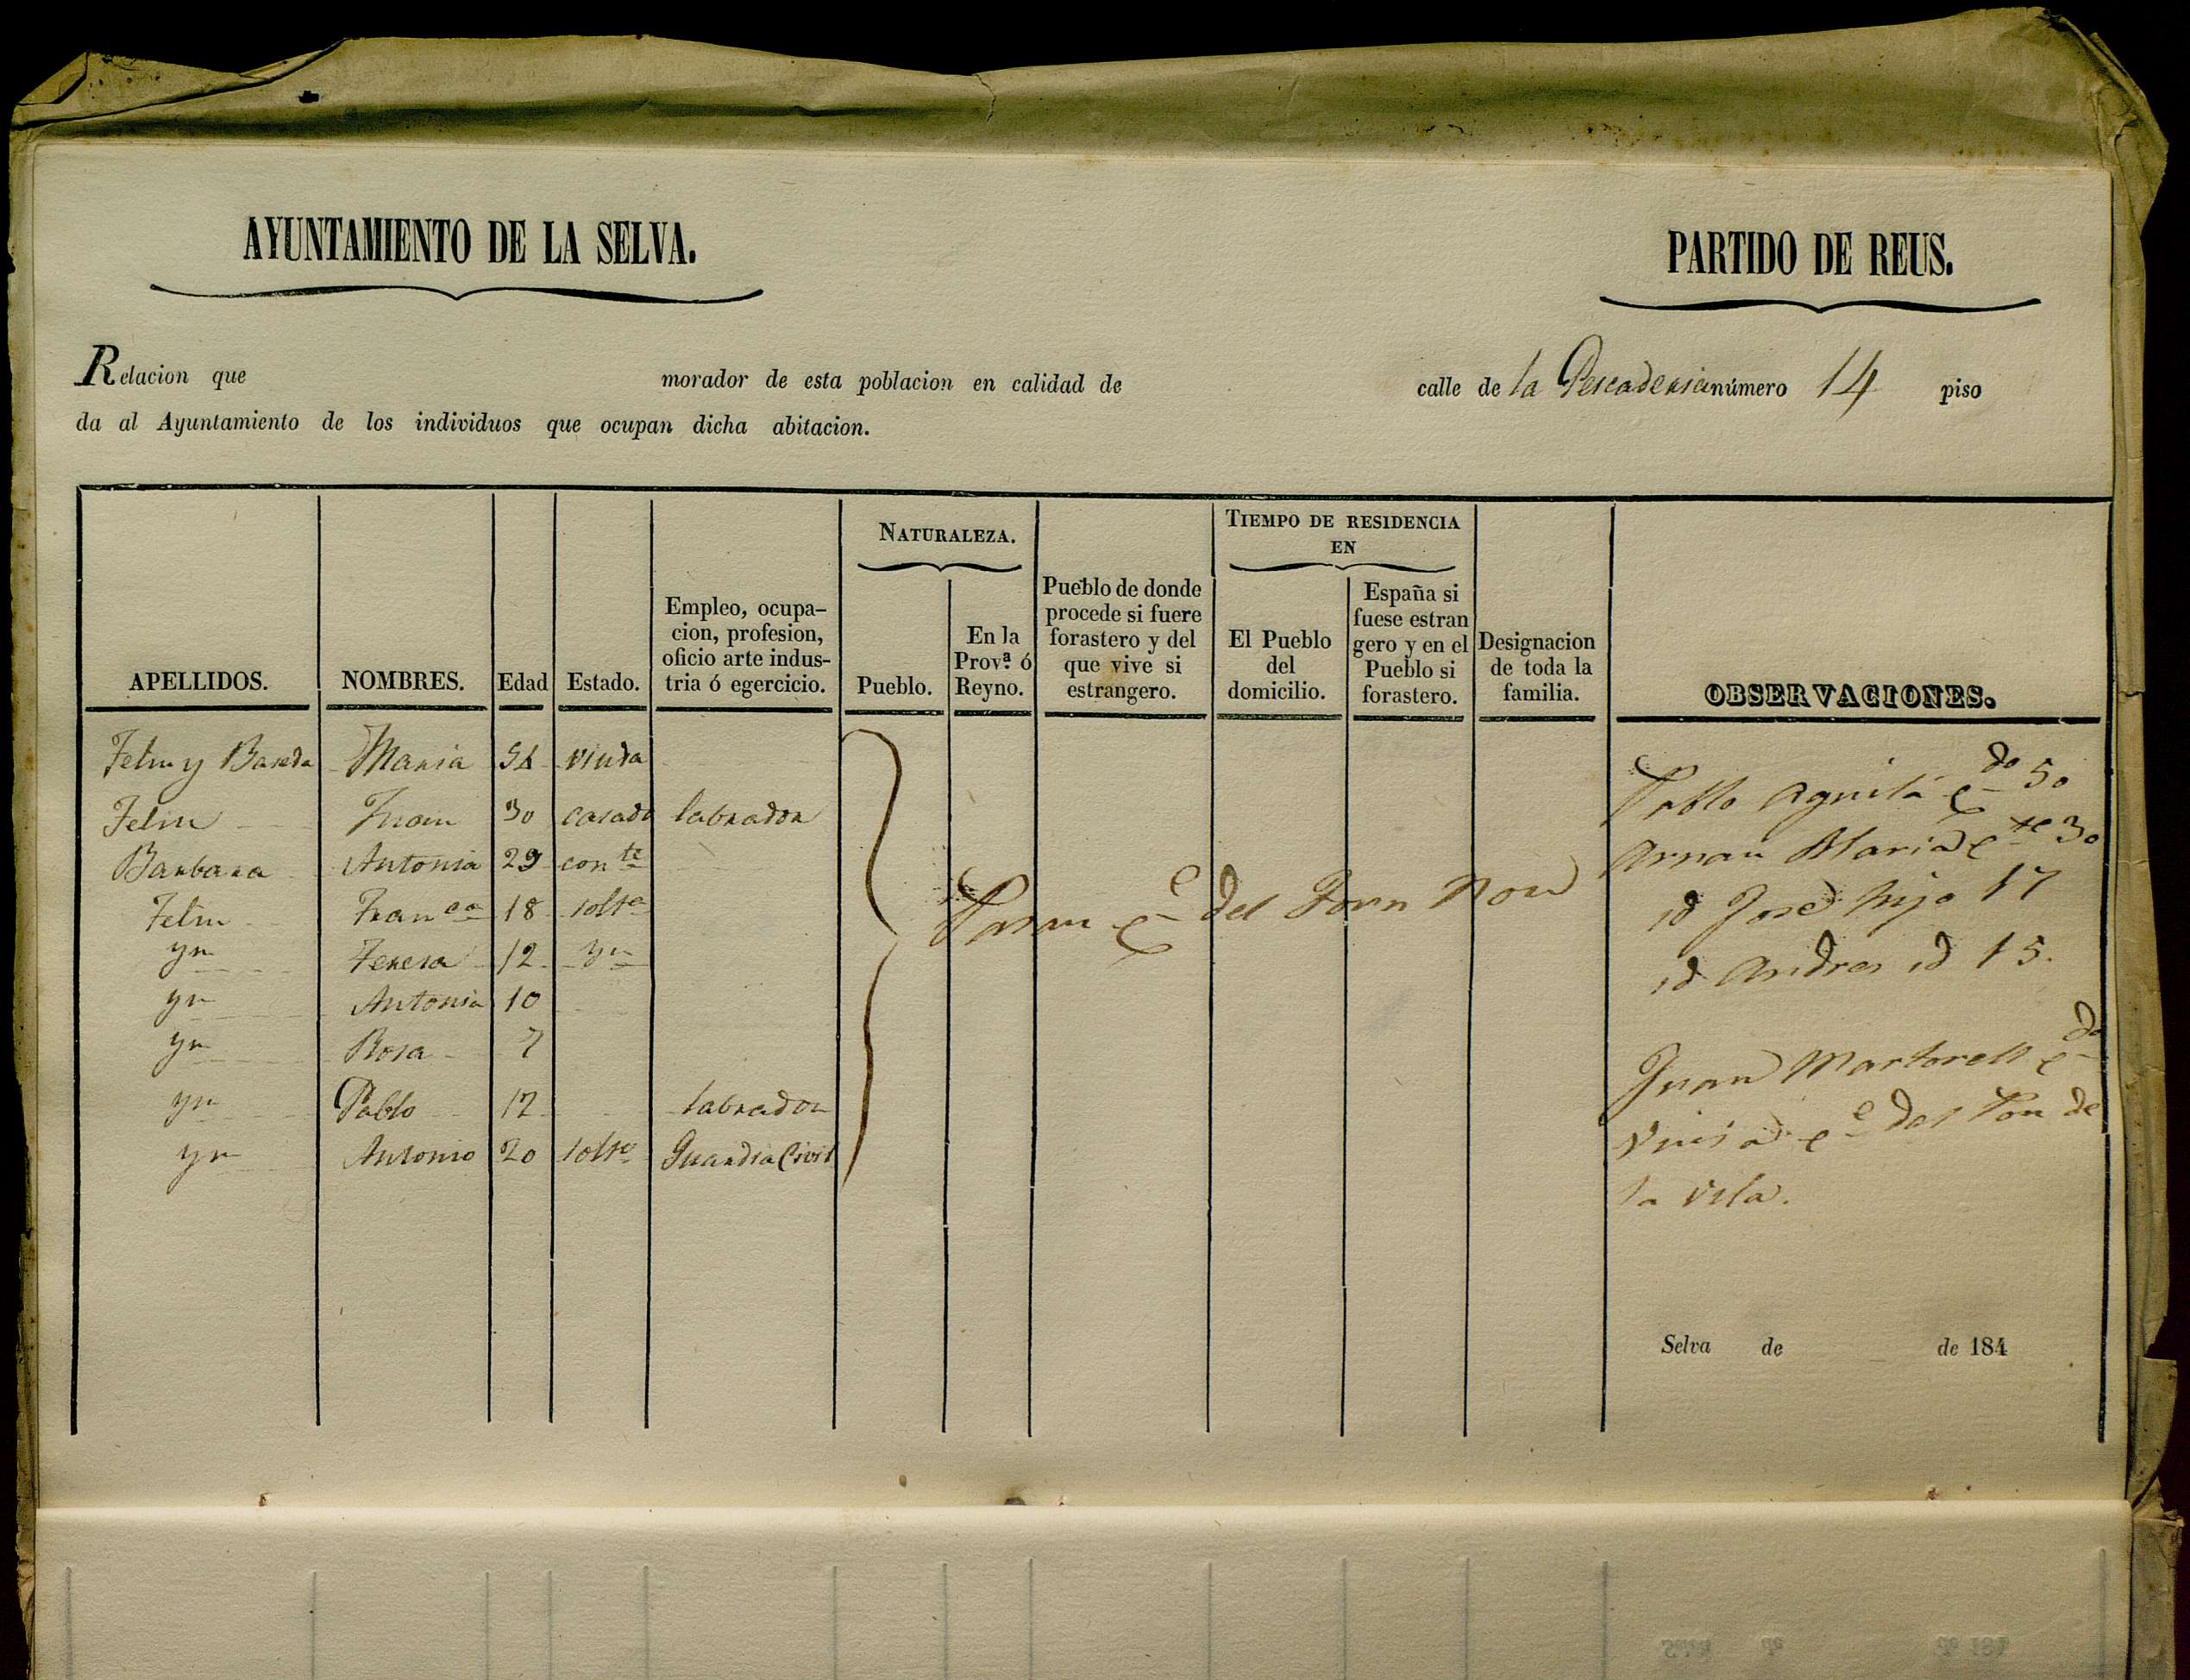 AYUNTAMIENTO DE LA SELVA.
PARTIDO DE REUS.
Relacion que morador de esta poblacion en calidad de calle de la Pescadersia número 14 piso
da al Ayuntamiento de los individuos que ocupan dicha abitacion.
APELLIDOS. NOMBRES. Edad Estado. Empleo, ocupa-
cion, profesion,
oficio arte indus-
tria ó egercicio.
NATURALEZA.
Pueblo. En la
Prov.ª ó
Reyno.
Pueblo de donde
procede si fuere
forastero y del
que vive si
estrangero.
TIEMPO DE RESIDENCIA
EN
El Pueblo
del
domicilio.
España si
fuese estran
gero y en el
Pueblo si
forastero.
Designacion
de toda la
familia.
OBSERVACIONES.
Feliu y Maria viuda
Feliu Juan 30 casado labrador
Barbara Antonia 29 con te
Feliu Franca 18 solta
yn Teresa 12 yn
yn Antonia 10
yn Rosa 7
yn Pablo 12 labrador
yn Antonio 20 solto Guardia Civil
Pasan ce del Forn Nou
Pablo Aguilá cdo 50
Arnau Maria cte 30
id José hijo 17
id Andres id 15.
Juan Martorell cdo
ce del Pou de
la vila.
Selva de de 184